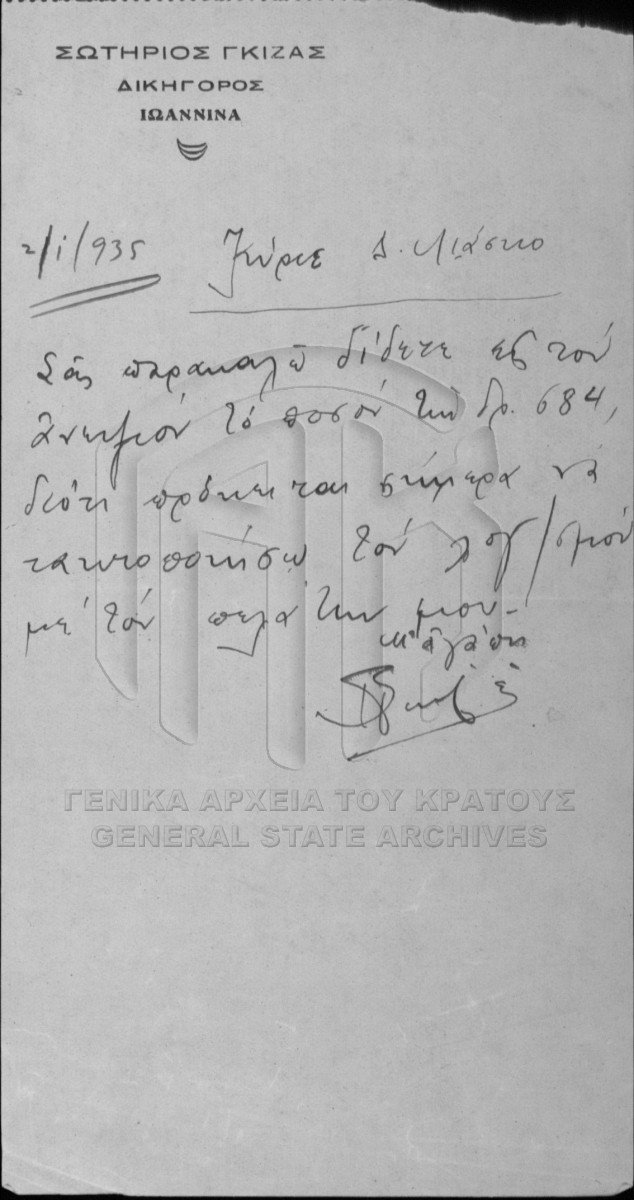 ΣΩΤΗΡΙΟΣ ΓΚΙΖΑΣ
ΔΙΚΗΓΟΡΟΣ
ΙΩΑΝΝΙΝΑ
2/1/935 Κύριε Δ. Λιάσκο
Σᾶς παρακαλῶ δίδετε εἰς τὸν
ἀνεψιόν τὸ ποσόν τῶν δρ. 684,
διότι πρόκειται σήμερα νὰ
τακτοποιήσω τὸν λογ/σμόν
μὲ τὸν πελάτην μου.
Μ' ἀγάπη
ΓΕΝΙΚΑ ΑΡΧΕΙΑ ΤΟΥ ΚΡΑΤΟΥΣ
GENERAL STATE ARCHIVES